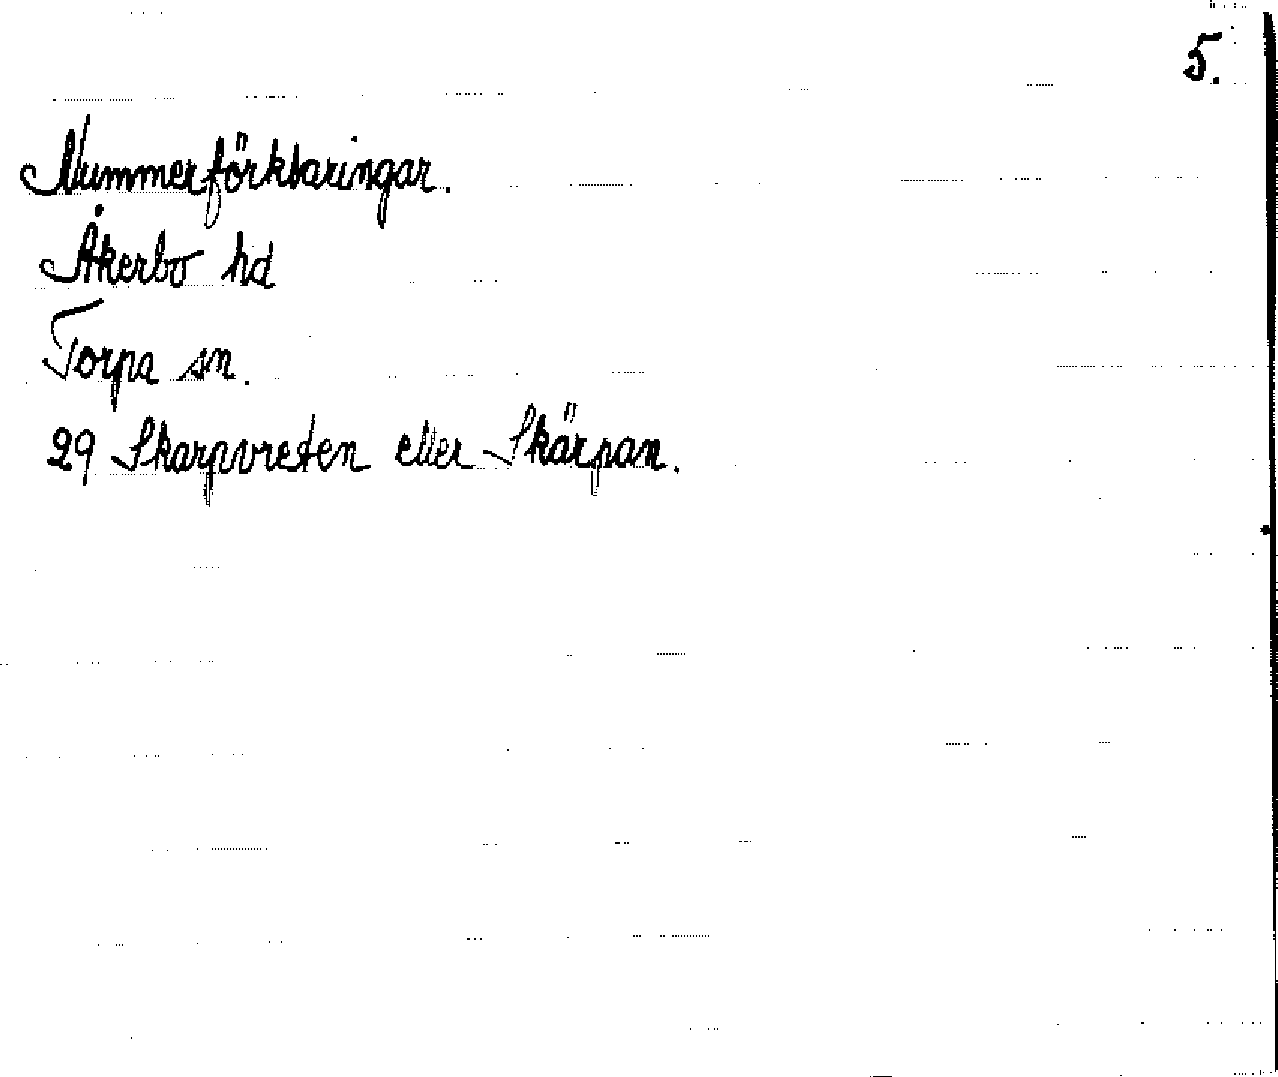 5.
Nummerförklaringar.
Åkerbo hd
Torpa sn.
29 Skarpvreten eller Skärpan.